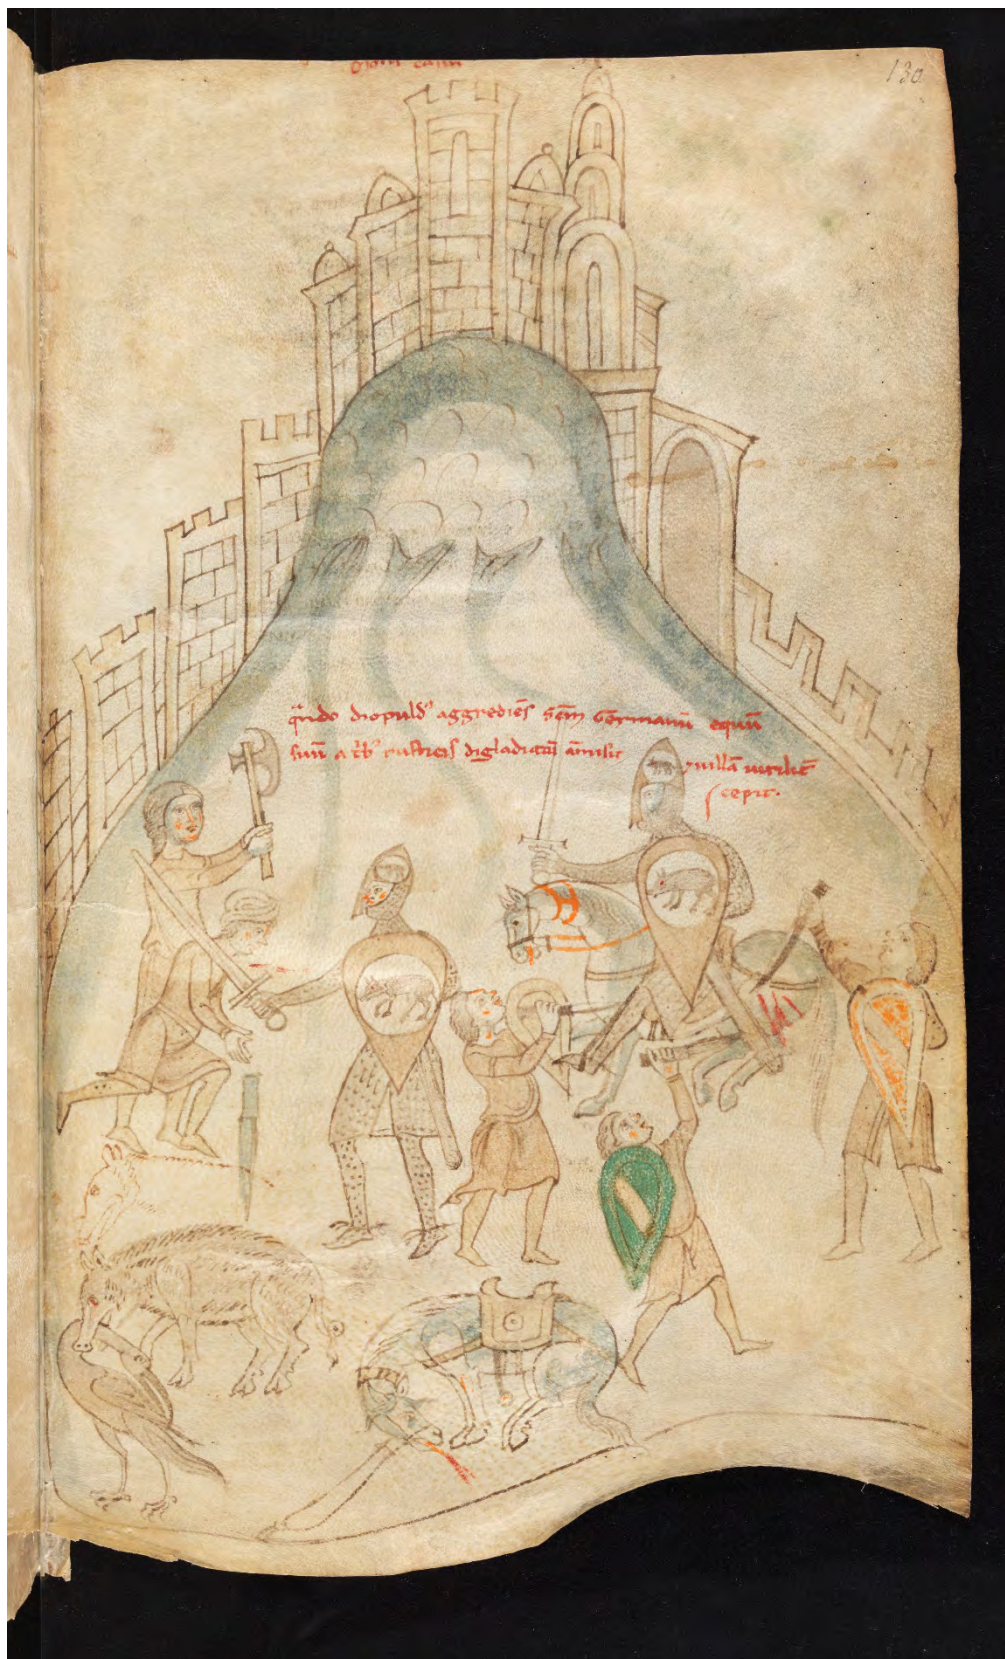 130
Mons casin
qn̄do diopuldꝰ aggrediēs Scm̄ Germanū equū
suū a t'bꝰ rusticis digladiatū amisit
⁊ uillā uiriliт̄
cepit.